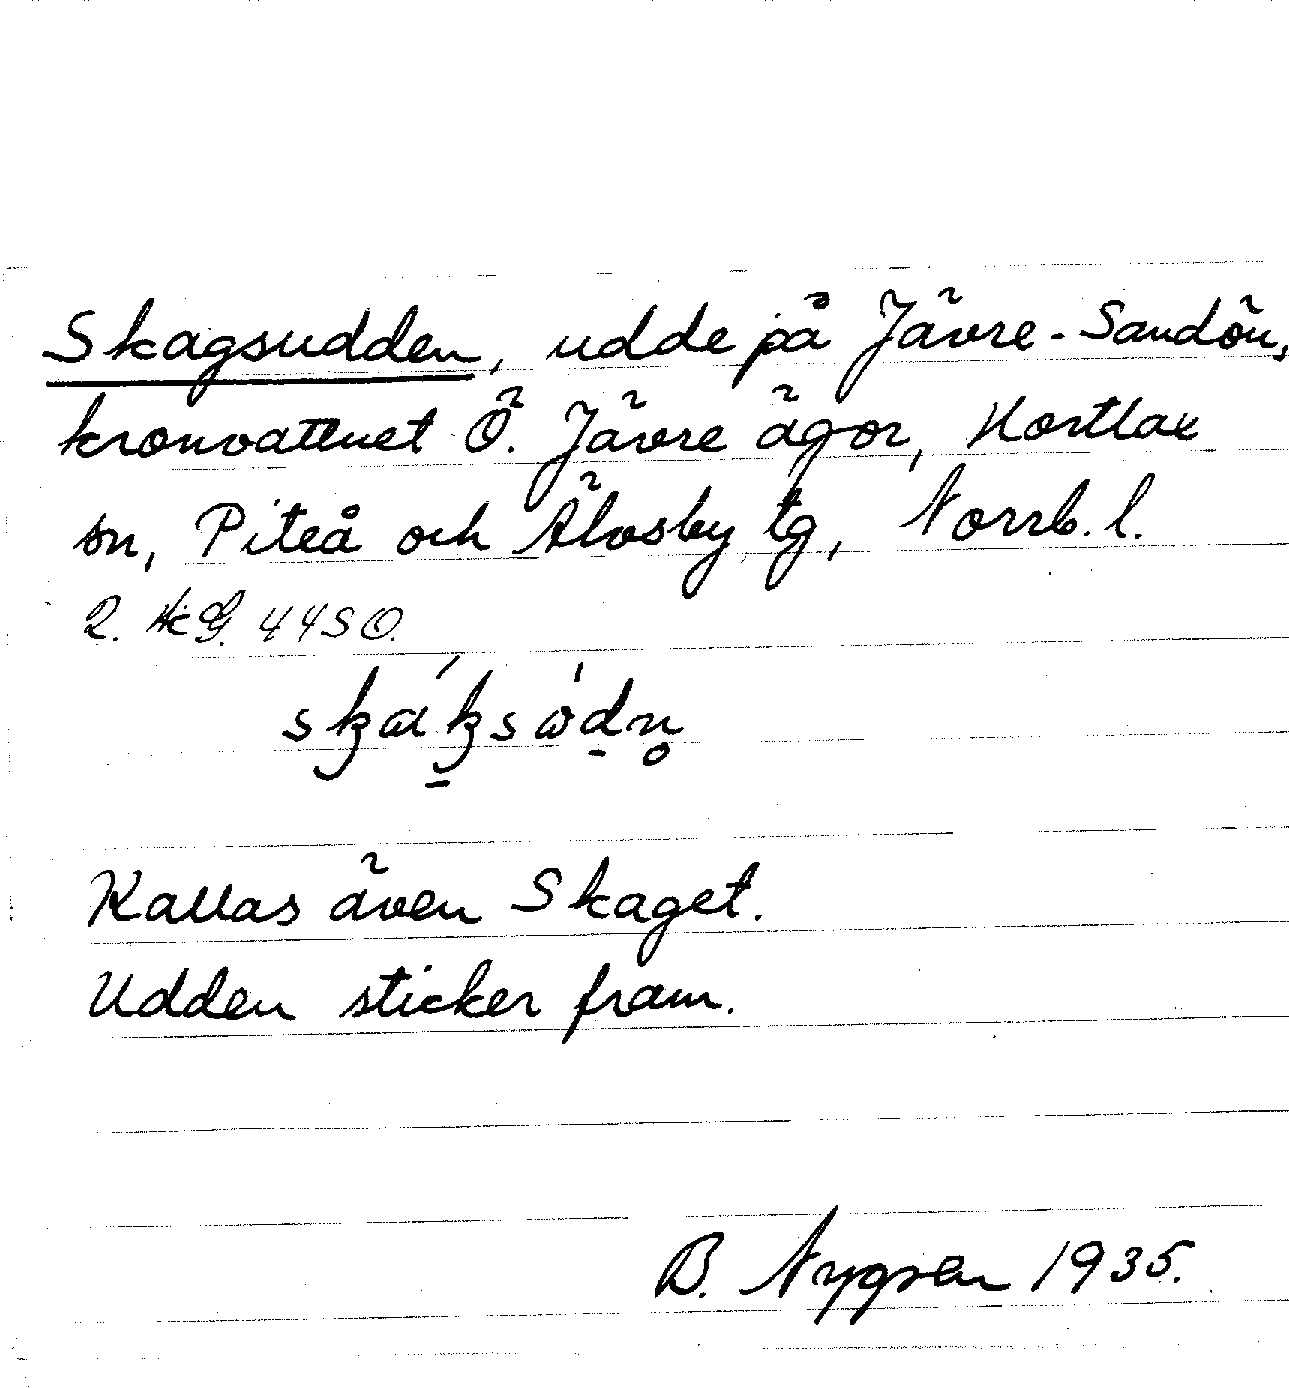 Skagsudden, udde på Jävre-Sandön,
kronvattnet Ö. Jävre ägor, Hortlax
sn, Piteå och Älvsby tg, Norrb. l.
2. 4450.
Kallas även Skaget.
Udden sticker fram.
B. Nygren 1935.